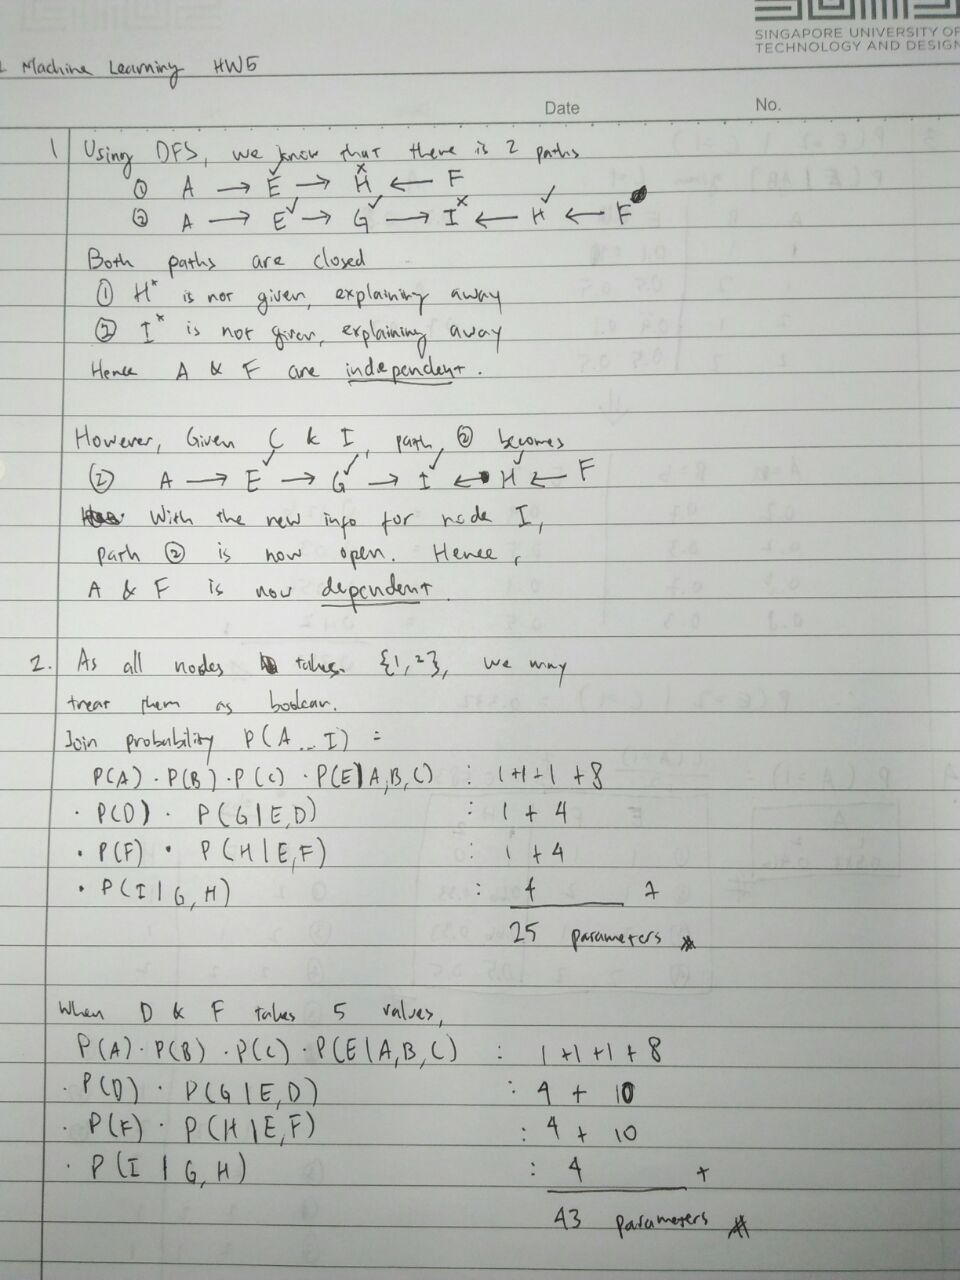 SINGAPORE UNIVERSITY OF
TECHNOLOGY AND DESIGN
Machine Learning HW5
Date No.
1 Using DFS, we know that there is 2 paths
① A → E✓ → H× ← F
② A → E✓ → G✓ → I× ← H✓ ← F
Both paths are closed
① H× is not given, explaining away
② I× is not given, explaining away
Hence A & F are independent.
However, Given C & I, path ② becomes
② A → E✓ → G✓ → I✓ ← H✓ ← F
With the new info for node I,
path ② is now open. Hence,
A & F is now dependent.
2. As all nodes takes {1,2}, we may
treat them as boolean.
Join probability P(A...I) =
P(A) · P(B) · P(C) · P(E|A,B,C) : 1+1+1+8
· P(D) · P(G|E,D) : 1 + 4
· P(F) · P(H|E,F) : 1 + 4
· P(I|G,H) : 4 +
25 parameters
When D & F takes 5 values,
P(A) · P(B) · P(C) · P(E|A,B,C) : 1+1+1+8
· P(D) · P(G|E,D) : 4 + 10
· P(F) · P(H|E,F) : 4 + 10
· P(I|G,H) : 4 +
43 parameters